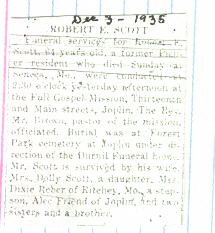 Dec 3 - 1935
ROBERT E. SCOTT
Funeral services for Robert E.
Scott, 61 years old, a former Pich-
er resident who died Sunday at
Seneca, Mo., were conducted at
2:30 o'clock yesterday afternoon at
the Full Gospel Mission, Thirteenth
and Main streets, Joplin. The Rev.
Mr. Brown, pastor of the mission,
officiated. Burial was at Forest
Park cemetery at Joplin under di-
rection of the Hurlbut Funeral home.
Mr. Scott is survived by his wife,
Mrs. Dolly Scott, a daughter, Mrs.
Dixie Reber of Ritchey, Mo., a step-
son, Alec Friend of Joplin, and two
sisters and a brother.